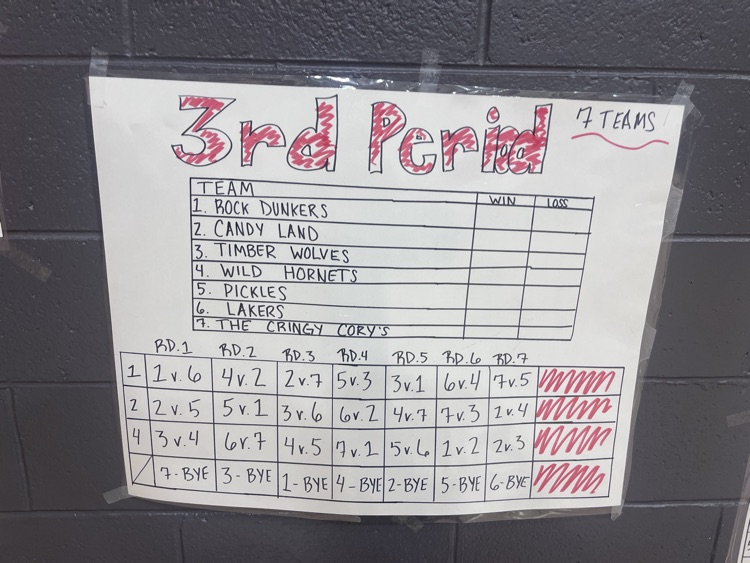 3rd Period
7 TEAMS
TEAM WIN LOSS
1. ROCK DUNKERS
2. CANDY LAND
3. TIMBER WOLVES
4. WILD HORNETS
5. PICKLES
6. LAKERS
7. THE CRINGY CORY'S
RD.1 RD.2 RD.3 RD.4 RD.5 RD.6 RD.7
1 1 v. 6 4 v. 2 2 v. 7 5 v. 3 3 v. 1 6 v. 4 7 v. 5
2 2 v. 5 5 v. 1 3 v. 6 6 v. 2 4 v. 7 7 v. 3 1 v. 4
4 3 v. 4 6 v. 7 4 v. 5 7 v. 1 5 v. 6 1 v. 2 2 v. 3
7-BYE 3-BYE 1-BYE 4-BYE 2-BYE 5-BYE 6-BYE